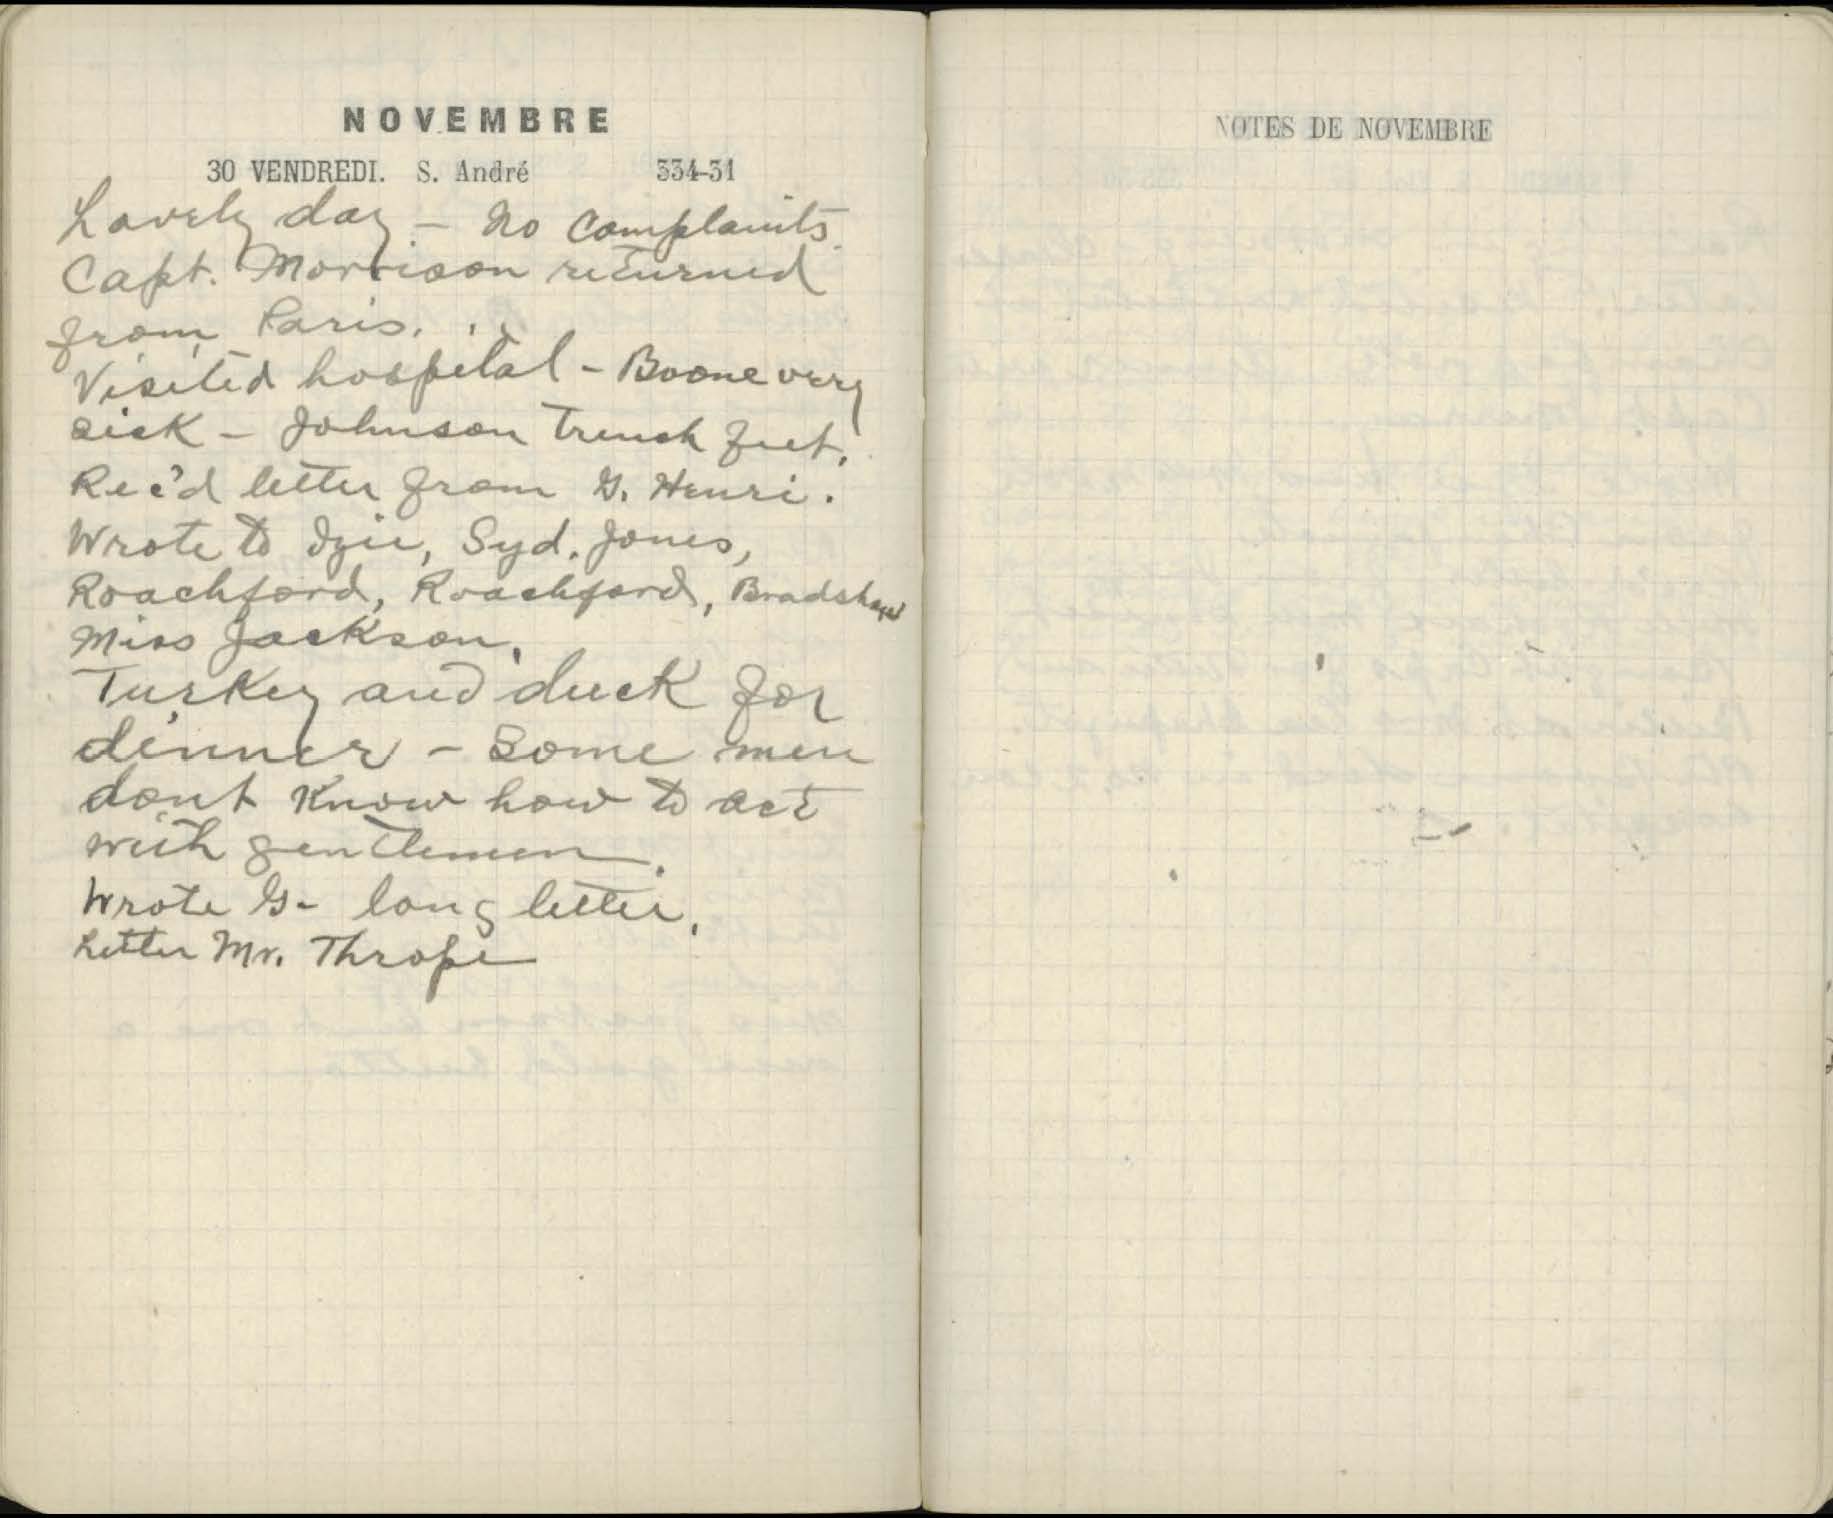 NOVEMBRE
30 VENDREDI. S. André 334-31
Lovely day - No Complaints.
Capt. Morrison returned
from Paris.
Visited hospital - Boone very
sick - Johnson Trench feet.
Rec'd letter from G. Henri.
Wrote to Izie, Syd. Jones,
Roachford, Roachford, Bradshaw
Miss Jackson.
Turkey and duck for
dinner - Some men
dont Know how to act
with gentlemen.
Wrote G- long letter.
Letter Mr. Thrope
NOTES DE NOVEMBRE